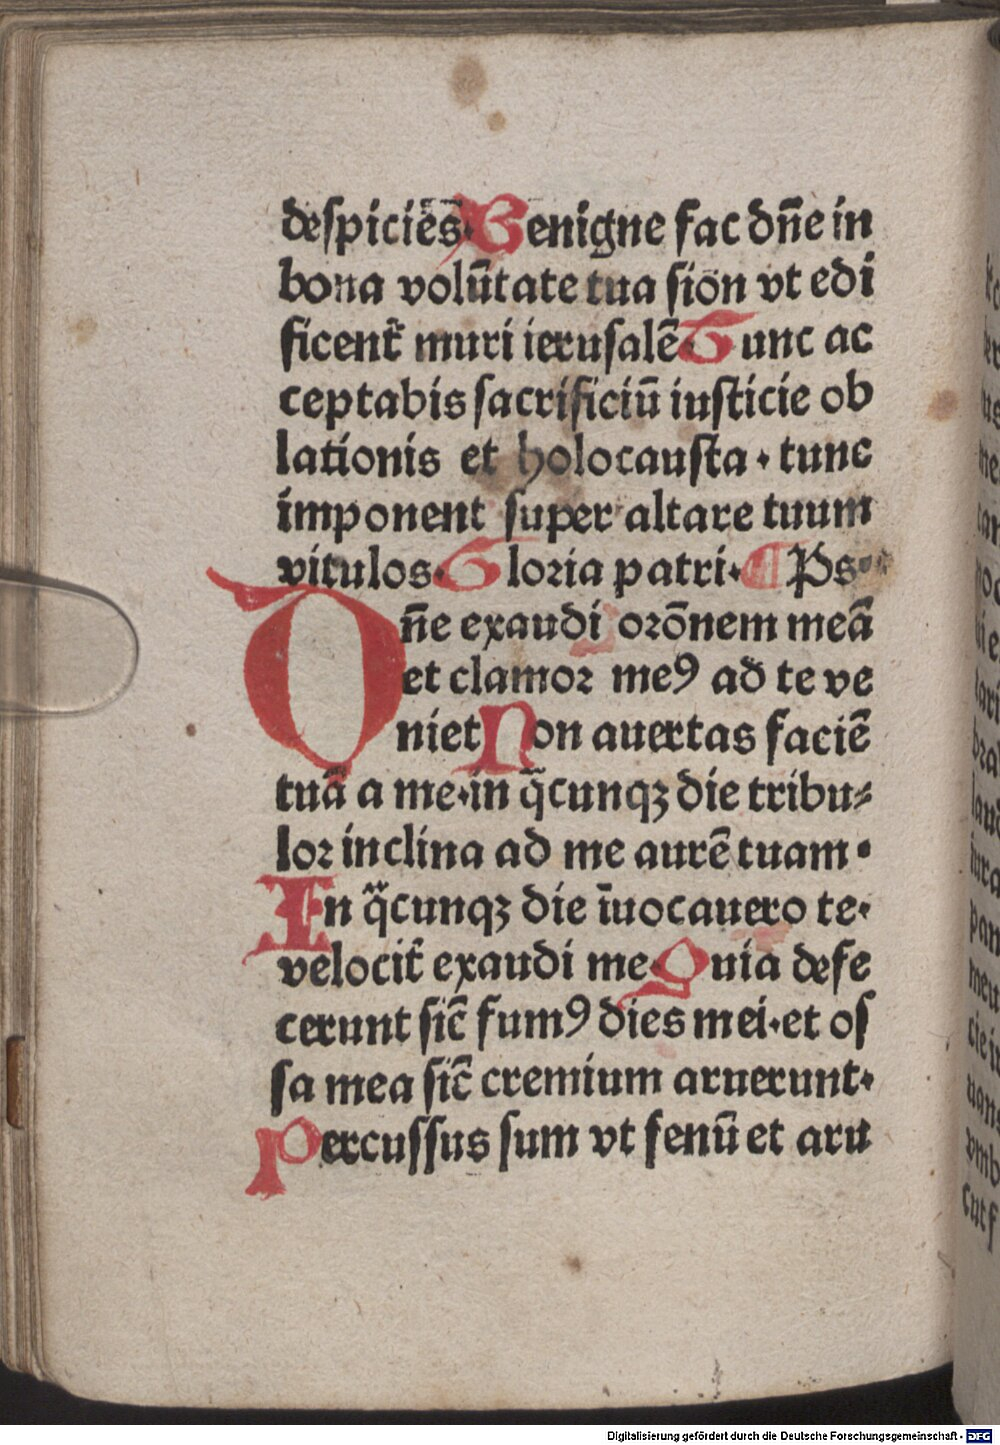 despiciēs. Benigne fac dn̄e in
bona volūtate tua sion vt edi
ficent᷑ muri ierusalē. Tunc ac
ceptabis sacrificiū iusticie ob
lationis et holocausta. tunc
īmponent super altare tuum
vitulos. Gloria patri. ¶ Ps.
Dn̄e exaudi orōnem meā
et clamor meꝰ ad te ve
niet Non auertas faciē
tuā a me. in q̄cunqꝫ die tribu⸗
lor inclina ad me aurē tuam.
In q̄cunqꝫ die īuocauero te.
velocit᷑ exaudi me. Quia defe
cerunt sic̄ fumꝰ dies mei. et os
sa mea sic̄ cremium aruerunt.
Percussus sum vt fenū et aru
Digitalisierung gefördert durch die Deutsche Forschungsgemeinschaft - DFG